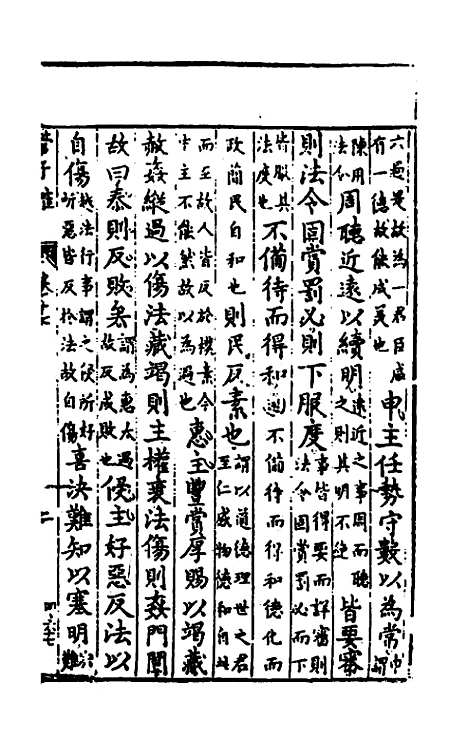 六過是故為一君臣盛有一德故能成美也申主任勢守數以為常申謂
陳用法令周聽近遠以續明遠近之事周而聽之則其明不絕皆要審
則法令固賞罰必則下服度事皆得要而詳審則法令固賞罰必而下
皆服其法度也不備待而得和不備待而得和德化而
政簡民自和也則民反素也謂以道德理世之君至仁感物德和自
而至故人皆反於樸素今中主不能然故以為過也惠主豐賞厚賜以竭藏
赦姦縱過以傷法藏竭則主權衰法傷則姦門闓
故曰泰則反敗矣謂為惠太過故反成敗也侵主好惡反法以
自傷越法行事謂之侵所好所惡皆反於法故自傷喜決難知以塞明難
管子 卷十七 二